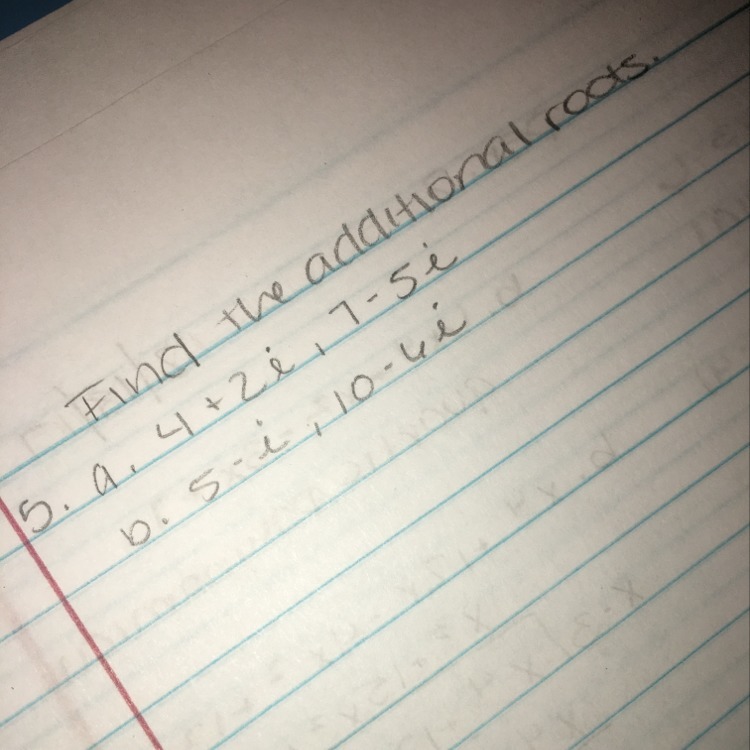 Find the additional roots.
5. a. 4+2i, 7-5i
b. 5-i, 10-6i